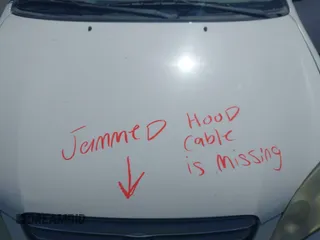 JammeD
HOOD
Cable
is missing